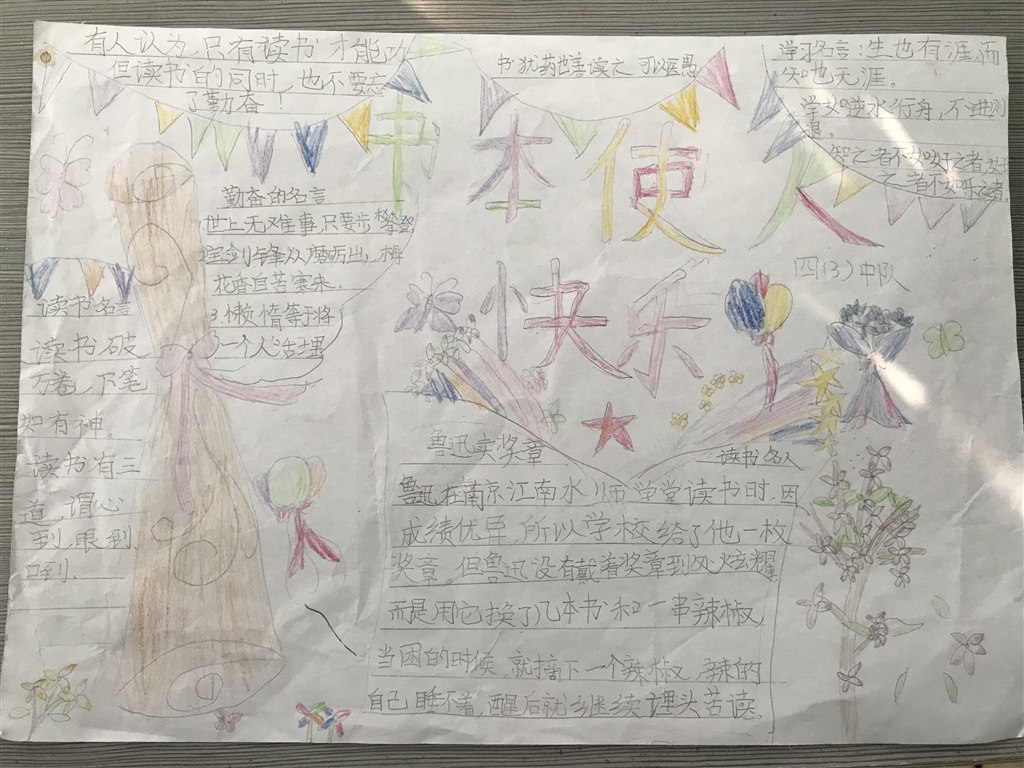 有人认为只有读书才能功
但读书的同时,也不要忘
了勤奋!
书犹药也善读之可以医愚
学习名言:生也有涯而
知也无涯。
学如逆水行舟,不进则
退。
知之者不如好之者好
之者不如乐之者
书本使人
快乐
四(3)中队
勤奋的名言
世上无难事只要步攀登
宝剑锋从磨厉出,梅
花香自苦寒来。
3懒惰等于将
一个人活埋
读书名言
读书破
万卷,下笔
如有神。
读书有三
道,谓心
到,眼到,
口到.
鲁迅卖奖章
读书名人
鲁迅在南京江南水师学堂读书时,因
成绩优异,所以学校给了他一枚
奖章,但鲁迅没有戴着奖章到处炫耀
而是用它换了几本书和一串辣椒,
当困的时候,就摘下一个辣椒,辣的
自己睡不着,醒后就继续埋头苦读.